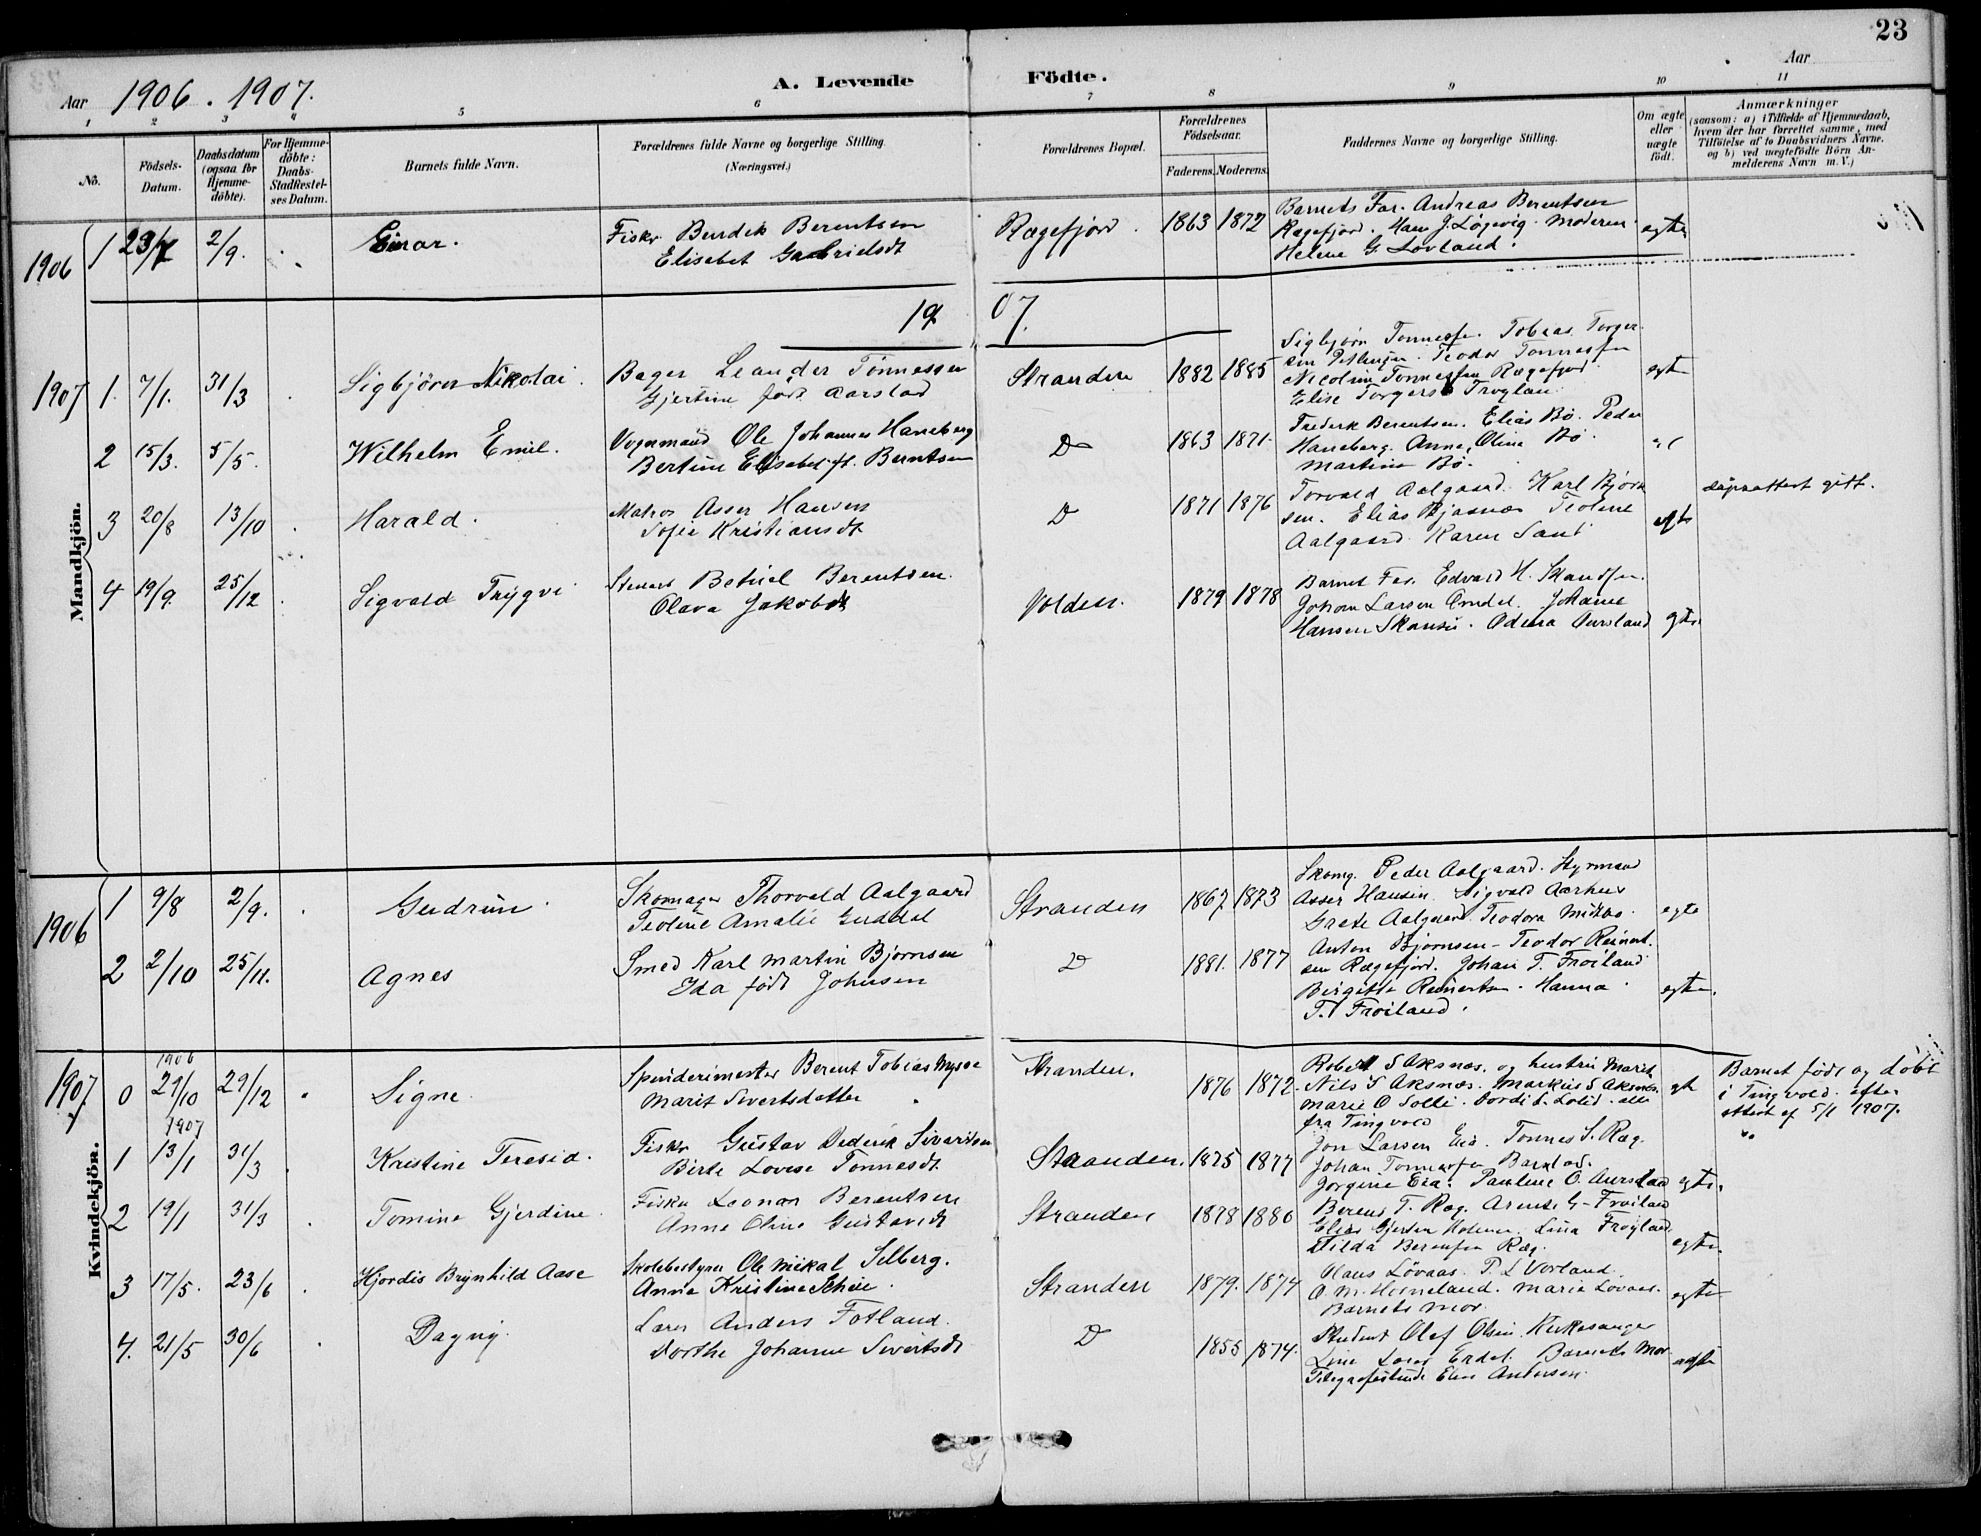 23
Aar 1906. 1907.
A. Levende Födte.
Aar
1 2 3 4 5 6 7 8 9 10 11
No.
Födsels-Datum.
Daabsdatum (ogsaa for Hjemme-döbte).
For Hjemme-döbte: Daabs-Stadfæstel-ses Datum.
Barnets fulde Navn.
Forældrenes fulde Navne og borgerlige Stilling
(Næringsvei.)
Forældrenes Bopæl.
Forældrenes Födselsaar.
Faderens. Moderens.
Faddernes Navne og borgerlige Stilling.
Om ægte eller uægte födt.
Anmærkninger
(saasom: a) i Tilfælde af Hjemmedaab,
hvem der har forrettet samme, med
Tilföielse af to Daabsvidners Navne.
og b) ved uægtefödte Börn An-
melderens Navn m. V.)
Mandkjön.
1906 1 23/7 2/9. Einar.
Fisker Bendik Berentsen
Elisabet Gabrielsdt
Rægefjord. 1863 1872
Barnets Far. Andreas Berentsen
Rægefjord. Hans J. Løgevig. Moderen
Helene G. Lovland.
egte
1907.
1907 1. 7/1. 31/3 Sigbjörn Nikolai.
Bager Leander Tønnessen
Gjertine født Aarstad
Stranden 1882 1885
Sigbjörn Tonnesen. Tobias Torger
sen. Teodor Tonnessen
Nicoline Tonnessen Rægefjord
Elise Torgers
egte
2 15/3. 5/5. Wilhelm Emil.
Vognmand Ole Johannes Haneberg
Bertine Elisabet f. Berntsen
Do 1863 1871.
Frederk Berentsen. Elias Bø. Peder
Haneberg. Anne Oline Bø.
Martine Bø.
3 20/8 13/10 Harald.
Matros Asser Hansen
Sofie Kristiansdt
D 1871 1876
Torvald Aalgaard. Karl Bjørn
sen. Elias Teoline
Aalgaard. Karen Sand
egte
dåpsattest gitt.
4 19/9. 25/12 Sigvald Trygve
Stenars Betuel Berentsen.
Olava Jakobsdt
Volden. 1879 1878
Barnets Far. Edvard H.
Johan Larsen Omdal. Johanne
Hansen. Odena
egte
Kvindekjön.
1906 1 9/8 2/9. Gudrun.
Skomager Thorvald Aalgaard
Teoline Amalie Guddal
Stranden 1867 1873
Skomg. Peder Aalgaard. Styrmand
Asser Hansen. Sigvald Aarhus
Grete Aalgaard. Teodora Midtbø.
egte
2 2/10 25/11. Agnes
Smed Karl Martin Bjørnsen
Ida født Johnsen
D 1881. 1877
Anton Bjørnsen - Teodor Reinert
sen Rægefjord. Johan T. Frøiland
Birgitte Reinertsen. Hanna
T. Frøiland.
egte.
1907 0 1906 29/10 29/12 Signe
Spinderimester Berent Tobias Mysse
Marit Sivertsdatter
Stranden. 1876 1872.
Robert S Aksnæs. og hustru Marit
Nils S Aksnæs. Markus S Aksnæs.
Marie O Solli. Dordi S. Solid. alle
fra Tingvold
egt
Barnet født og døbt
i Tingvold. efter
attest af 5/1 1907.
1907
1 13/1 31/3 Kristine Teresia.
Fisker Gustav Dederik Sivertsen
Birte Lovise Tønnesdt
Stranden. 1875 1877
Jon Larsen Eia. Tonnes S. Ræg.
Johan Tonnessen Barstad.
Jorgine Eia. Pauline O. Aurstad
egte.
2 19/1 31/3 Tomine Gjerdine
Fisker Leonar Berentsen
Anne Oline Gustavsdt
Stranden 1878 1880
Berent T. Ræg. G. Frøiland
Elias Gjertsen. Lina Frøyland
Tilda Berensen Ræg.
egte.
3 17/5. 23/6 Hjordis Brynhild Aase
Skolebestyrer Ole Mikal Selberg.
Anna Kristine Scheie
Stranden 1879. 1874
Claus Løvaas. P. L. Vorland.
O. M. Homeland. Marie Løvaas.
Barnets Mor.
egte
4. 21/5 30/6 Dagny.
Lærer Anders Fotland.
Dorthe Johanne Sivertsdt
D 1855 1874.
Student Olaf Olsen. Kirkesanger
Barnets Mor
Telegrafistinde Elise Andersen.
egte